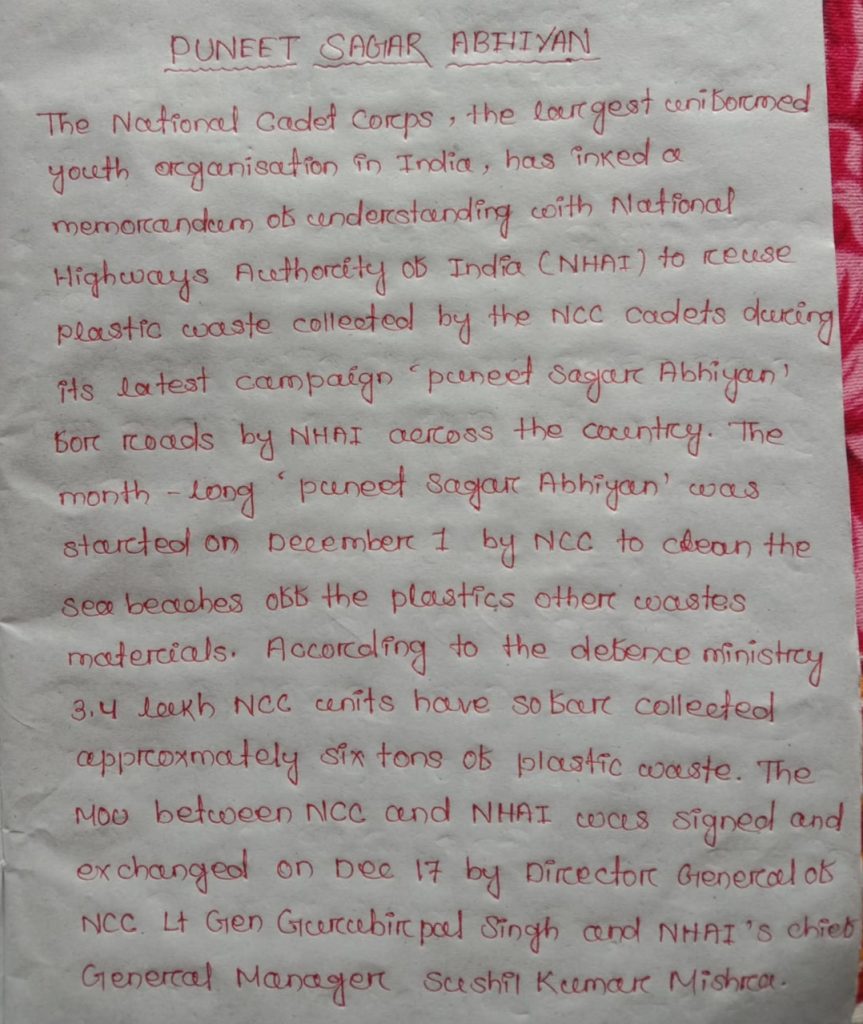 PUNEET SAGAR ABHIYAN
The National Cadet Corps, the largest uniformed
youth organisation in India, has inked a
memorandum of understanding with National
Highways Authority of India (NHAI) to reuse
plastic waste collected by the NCC cadets during
its latest campaign 'puneet Sagar Abhiyan'
for roads by NHAI across the country. The
month-long 'puneet Sagar Abhiyan' was
started on December 1 by NCC to clean the
sea beaches off the plastics other wastes
materials. According to the defence ministry
3.4 lakh NCC units have so far collected
approxmately six tons of plastic waste. The
MOU between NCC and NHAI was signed and
exchanged on Dec 17 by Director General of
NCC. Lt Gen Gurubirpal Singh and NHAI's chief
General Manager Sushil Kumar Mishra.